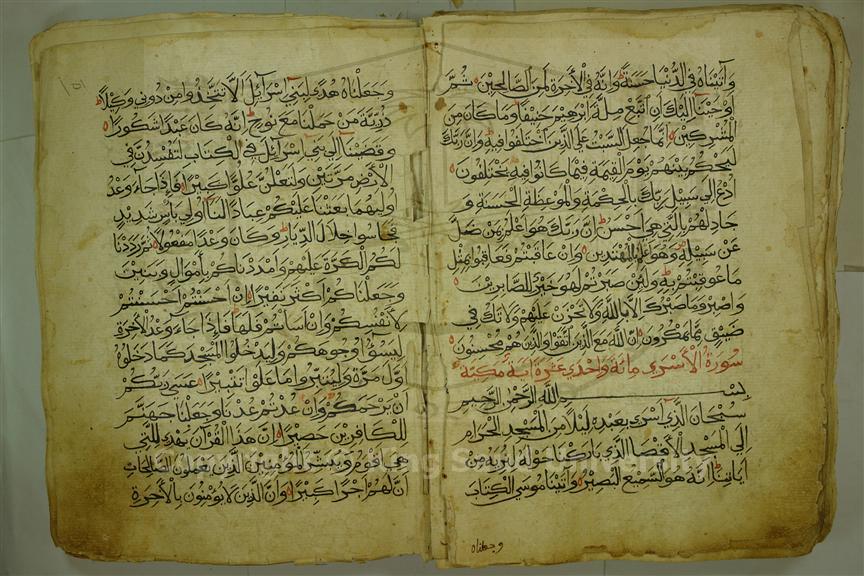 وَآتَيْنَاهُ فِي الدُّنْيَا حَسَنَةً وَإِنَّهُ فِي الْأَخِرَةِ لَمِنَ الصَّالِحِينَ ثُمَّ
أَوْحَيْنَا إِلَيْكَ أَنِ اتَّبِعْ مِلَّةَ إِبْرَهِيمَ حَنِيفًا وَمَا كَانَ مِنَ
الْمُشْرِكِينَ إِنَّمَا جُعِلَ السَّبْتُ عَلَى الَّذِينَ اخْتَلَفُوا فِيهِ وَإِنَّ رَبَّكَ
لَيَحْكُمُ بَيْنَهُمْ يَوْمَ الْقِيَمَةِ فِيمَا كَانُوا فِيهِ يَخْتَلِفُونَ
ادْعُ إِلَى سَبِيلِ رَبِّكَ بِالْحِكْمَةِ وَالْمَوْعِظَةِ الْحَسَنَةِ وَ
جَادِلْهُمْ بِالَّتِي هِيَ أَحْسَنُ إِنَّ رَبَّكَ هُوَ أَعْلَمُ بِمَنْ ضَلَّ
عَنْ سَبِيلِهِ وَهُوَ أَعْلَمُ بِالْمُهْتَدِينَ وَإِنْ عَاقَبْتُمْ فَعَاقِبُوا بِمِثْلِ
مَا عُوقِبْتُمْ بِهِ وَلَئِنْ صَبَرْتُمْ لَهُوَ خَيْرٌ لِلصَّابِرِينَ
وَاصْبِرْ وَمَا صَبْرُكَ إِلَّا بِاللَّهِ وَلَا تَحْزَنْ عَلَيْهِمْ وَلَا تَكُ فِي
ضَيْقٍ مِمَّا يَمْكُرُونَ إِنَّ اللَّهَ مَعَ الَّذِينَ اتَّقَوْا وَالَّذِينَ هُمْ مُحْسِنُونَ
سُورَةُ الْأَسْرَى مِائَة وَاحْدَى عَشْرَةَ آيَة مَكِّيَّة
بِسْمِ اللَّهِ الرَّحْمَنِ الرَّحِيمِ
سُبْحَانَ الَّذِي أَسْرَى بِعَبْدِهِ لَيْلًا مِنَ الْمَسْجِدِ الْحَرَامِ
إِلَى الْمَسْجِدِ الْأَقْصَا الَّذِي بَارَكْنَا حَوْلَهُ لِنُرِيَهُ مِنْ
آيَاتِنَا إِنَّهُ هُوَ السَّمِيعُ الْبَصِيرُ وَآتَيْنَا مُوسَى الْكِتَابَ
وجعلناه
وَجَعَلْنَاهُ هُدًى لِبَنِي إِسْرَآئِلَ أَلَّا تَتَّخِذُوا مِنْ دُونِي وَكِيلًا
ذُرِّيَّةَ مَنْ حَمَلْنَا مَعَ نُوحٍ إِنَّهُ كَانَ عَبْدًا شَكُورًا
وَقَضَيْنَا إِلَى بَنِي إِسْرَآئِلَ فِي الْكِتَابِ لَتُفْسِدُنَّ فِي
الْأَرْضِ مَرَّتَيْنِ وَلَتَعْلُنَّ عُلُوًّا كَبِيرًا فَإِذَا جَاءَ وَعْدُ
أُولَيهُمَا بَعَثْنَا عَلَيْكُمْ عِبَادًا لَنَا أُولِي بَأْسٍ شَدِيدٍ
فَجَاسُوا خِلَالَ الدِّيَارِ وَكَانَ وَعْدًا مَفْعُولًا ثُمَّ رَدَدْنَا
لَكُمُ الْكَرَّةَ عَلَيْهِمْ وَأَمْدَدْنَاكُمْ بِأَمْوَالٍ وَبَنِينَ
وَجَعَلْنَاكُمْ أَكْثَرَ نَفِيرًا إِنْ أَحْسَنْتُمْ أَحْسَنْتُمْ
لِأَنْفُسِكُمْ وَإِنْ أَسَأْتُمْ فَلَهَا فَإِذَا جَاءَ وَعْدُ الْأَخِرَةِ
لِيَسُوؤُا وُجُوهَكُمْ وَلِيَدْخُلُوا الْمَسْجِدَ كَمَا دَخَلُوهُ
أَوَّلَ مَرَّةٍ وَلِيُتَبِّرُوا مَا عَلَوْا تَتْبِيرًا عَسَى رَبُّكُمْ
أَنْ يَرْحَمَكُمْ وَإِنْ عُدْتُمْ عُدْنَا وَجَعَلْنَا جَهَنَّمَ
لِلْكَافِرِينَ حَصِيرًا إِنَّ هَذَا الْقُرْآنَ يَهْدِي لِلَّتِي
هِيَ أَقْوَمُ وَيُبَشِّرُ الْمُؤْمِنِينَ الَّذِينَ يَعْمَلُونَ الصَّالِحَاتِ
أَنَّ لَهُمْ أَجْرًا كَبِيرًا وَأَنَّ الَّذِينَ لَا يُؤْمِنُونَ بِالْأَخِرَةِ